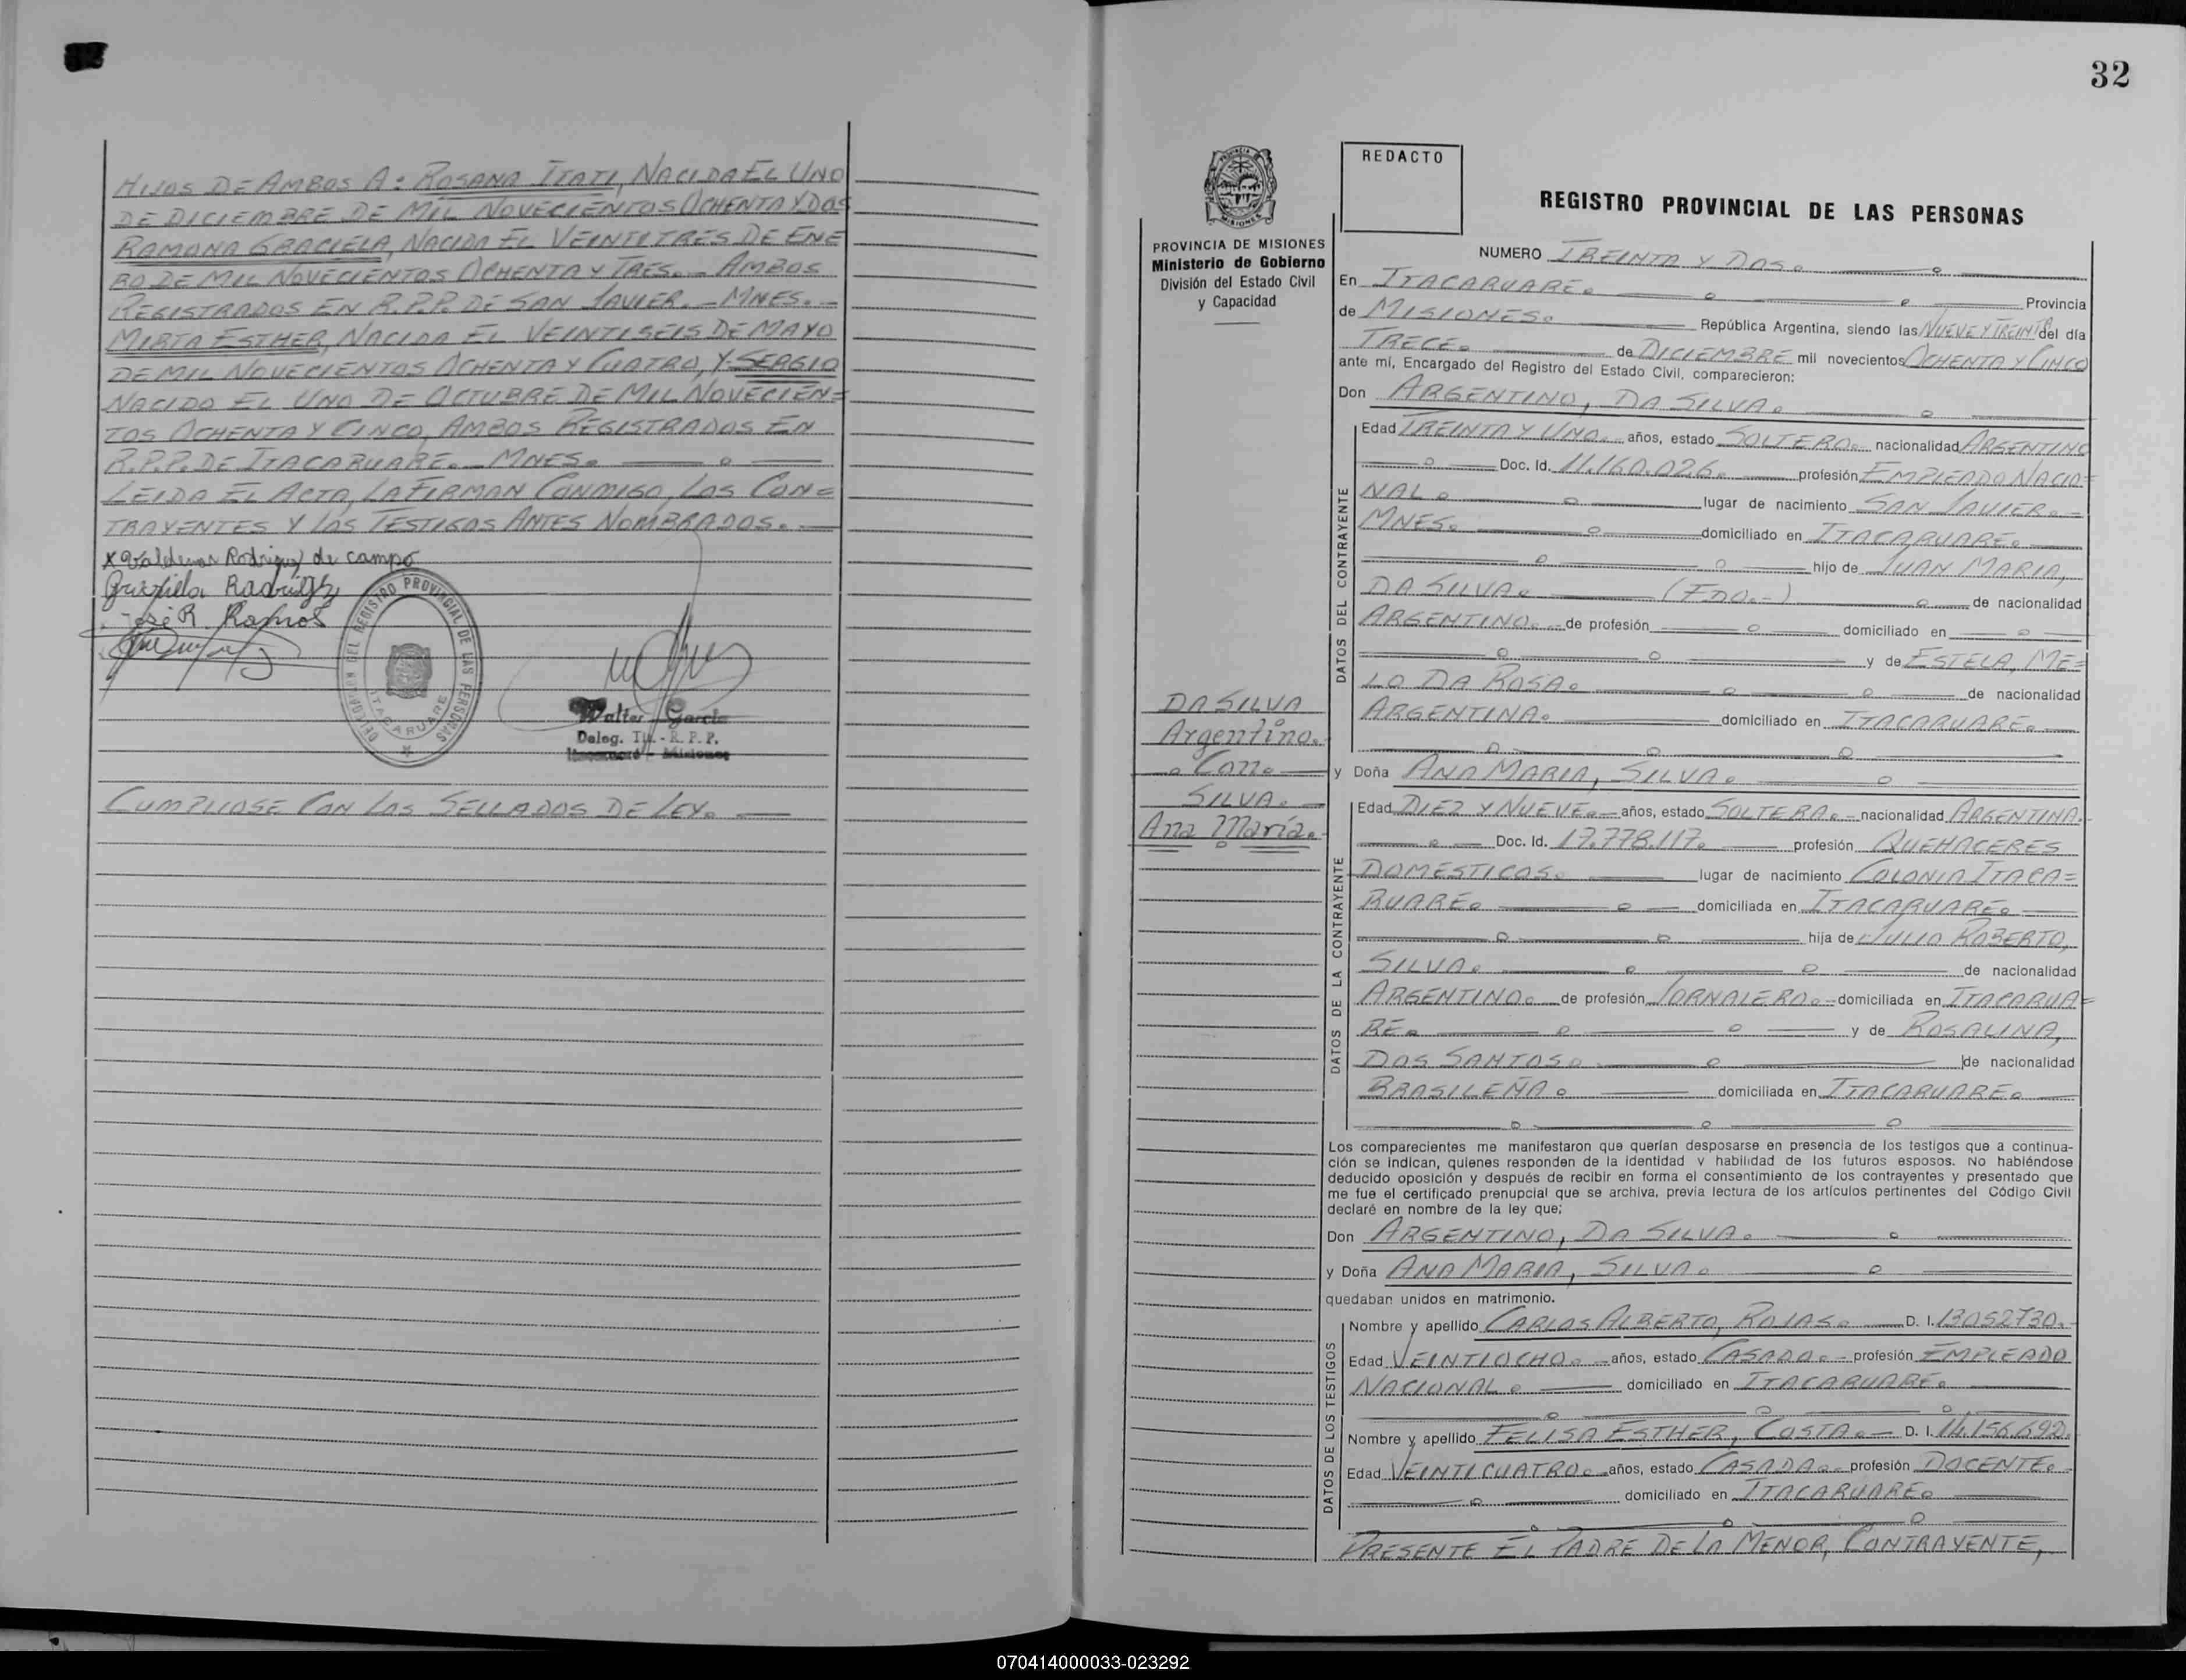 HIJOS DE AMBOS A: ROSANA ITATI, NACIDA EL UNO
DE DICIEMBRE DE MIL NOVECIENTOS OCHENTA Y DOS
RAMONA GRACIELA, NACIDA EL VEINTITRES DE ENE
RO DE MIL NOVECIENTOS OCHENTA Y TRES.- AMBOS
REGISTRADOS EN R.P.P. DE SAN JAVIER.- MNES.-
MIRTA ESTHER, NACIDA EL VEINTISEIS DE MAYO
DE MIL NOVECIENTOS OCHENTA Y CUATRO, Y SERGIO
NACIDO EL UNO DE OCTUBRE DE MIL NOVECIEN=
TOS OCHENTA Y CINCO, AMBOS REGISTRADOS EN
R.P.P. DE ITACARUARE.- MNES.
LEIDA EL ACTA, LA FIRMAN CONMIGO, LOS CON=
TRAYENTES Y LOS TESTIGOS ANTES NOMBRADOS.
x Valdemar Rodriguez de campo
José R. Ramos
DELEGACION DEL REGISTRO PROVINCIAL DE LAS PERSONAS
ITACARUARE
Walter García
Deleg. Tit. - R. P. P.
Itacaruaré - Misiones
CUMPLIOSE CON LOS SELLADOS DE LEY.
32
REDACTO
REGISTRO PROVINCIAL DE LAS PERSONAS
PROVINCIA DE MISIONES
Ministerio de Gobierno
División del Estado Civil
y Capacidad
NUMERO TREINTA Y DOS.
En ITACARUARE. Provincia
de MISIONES. República Argentina, siendo las NUEVE Y TREINTA del día
TRECE. de DICIEMBRE mil novecientos OCHENTA Y CINCO
ante mí, Encargado del Registro del Estado Civil, comparecieron:
Don ARGENTINO, DA SILVA.
DATOS DEL CONTRAYENTE
Edad TREINTA Y UNO.- años, estado SOLTERO.- nacionalidad ARGENTINO
Doc. Id. 11.160.026. profesión EMPLEADO NACIO=
NAL. lugar de nacimiento SAN JAVIER.-
MNES. domiciliado en ITACARUARE.
hijo de JUAN MARIA,
DA SILVA. (FDO.-) de nacionalidad
ARGENTINO. de profesión domiciliado en
y de ESTELA, ME=
LO DA ROSA. de nacionalidad
ARGENTINA. domiciliado en ITACARUARE.
DA SILVA
Argentino.
Con
SILVA.
Ana María.
y Doña ANA MARIA, SILVA.
DATOS DE LA CONTRAYENTE
Edad DIEZ Y NUEVE.- años, estado SOLTERA.- nacionalidad ARGENTINA.
Doc. Id. 17.778.117. profesión QUEHACERES
DOMESTICOS. lugar de nacimiento COLONIA ITACA=
RUARE. domiciliada en ITACARUARE.
hija de JULIO ROBERTO,
SILVA. de nacionalidad
ARGENTINO. de profesión JORNALERO.- domiciliada en ITACARUA=
RE. y de ROSALINA,
DOS SANTOS. de nacionalidad
BRASILEÑA. domiciliada en ITACARUARE.
Los comparecientes me manifestaron que querían desposarse en presencia de los testigos que a continua-
ción se indican, quienes responden de la identidad y habilidad de los futuros esposos. No habiéndose
deducido oposición y después de recibir en forma el consentimiento de los contrayentes y presentado que
me fue el certificado prenupcial que se archiva, previa lectura de los artículos pertinentes del Código Civil
declaré en nombre de la ley que;
Don ARGENTINO, DA SILVA.
y Doña ANA MARIA, SILVA.
quedaban unidos en matrimonio.
DATOS DE LOS TESTIGOS
Nombre y apellido CARLOS ALBERTO, ROJAS. D. I. 13052730.
Edad VEINTIOCHO.- años, estado CASADO.- profesión EMPLEADO
NACIONAL. domiciliado en ITACARUARE.
Nombre y apellido FELISA ESTHER, COSTA.- D. I. 14.156.692.
Edad VEINTICUATRO. años, estado CASADA.- profesión DOCENTE.
domiciliado en ITACARUARE.
PRESENTE EL PADRE DE LA MENOR, CONTRAYENTE,
070414000033-023292